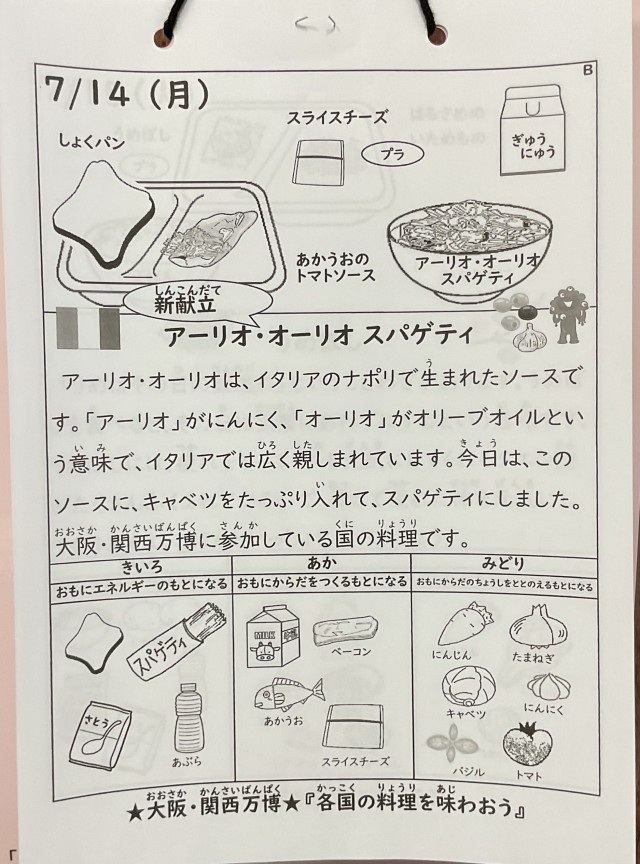 B
7/14(月)
スライスチーズ
プラ
しょくパン
ぎゅう
にゅう
あかうおの
トマトソース
アーリオ・オーリオ
スパゲティ
しんこんだて
新献立
アーリオ・オーリオ スパゲティ
アーリオ・オーリオは、イタリアのナポリで生まれたソースで
す。「アーリオ」がにんにく、「オーリオ」がオリーブオイルとい
う意味で、イタリアでは広く親しまれています。今日は、この
ソースに、キャベツをたっぷり入れて、スパゲティにしました。
大阪・関西万博に参加している国の料理です。
きいろ
おもにエネルギーのもとになる
あか
おもにからだをつくるもとになる
みどり
おもにからだのちょうしをととのえるもとになる
スパゲティ
さとう
あぶら
MILK
ベーコン
あかうお
スライスチーズ
にんじん
たまねぎ
キャベツ
にんにく
バジル
トマト
★大阪・関西万博★『各国の料理を味わおう』